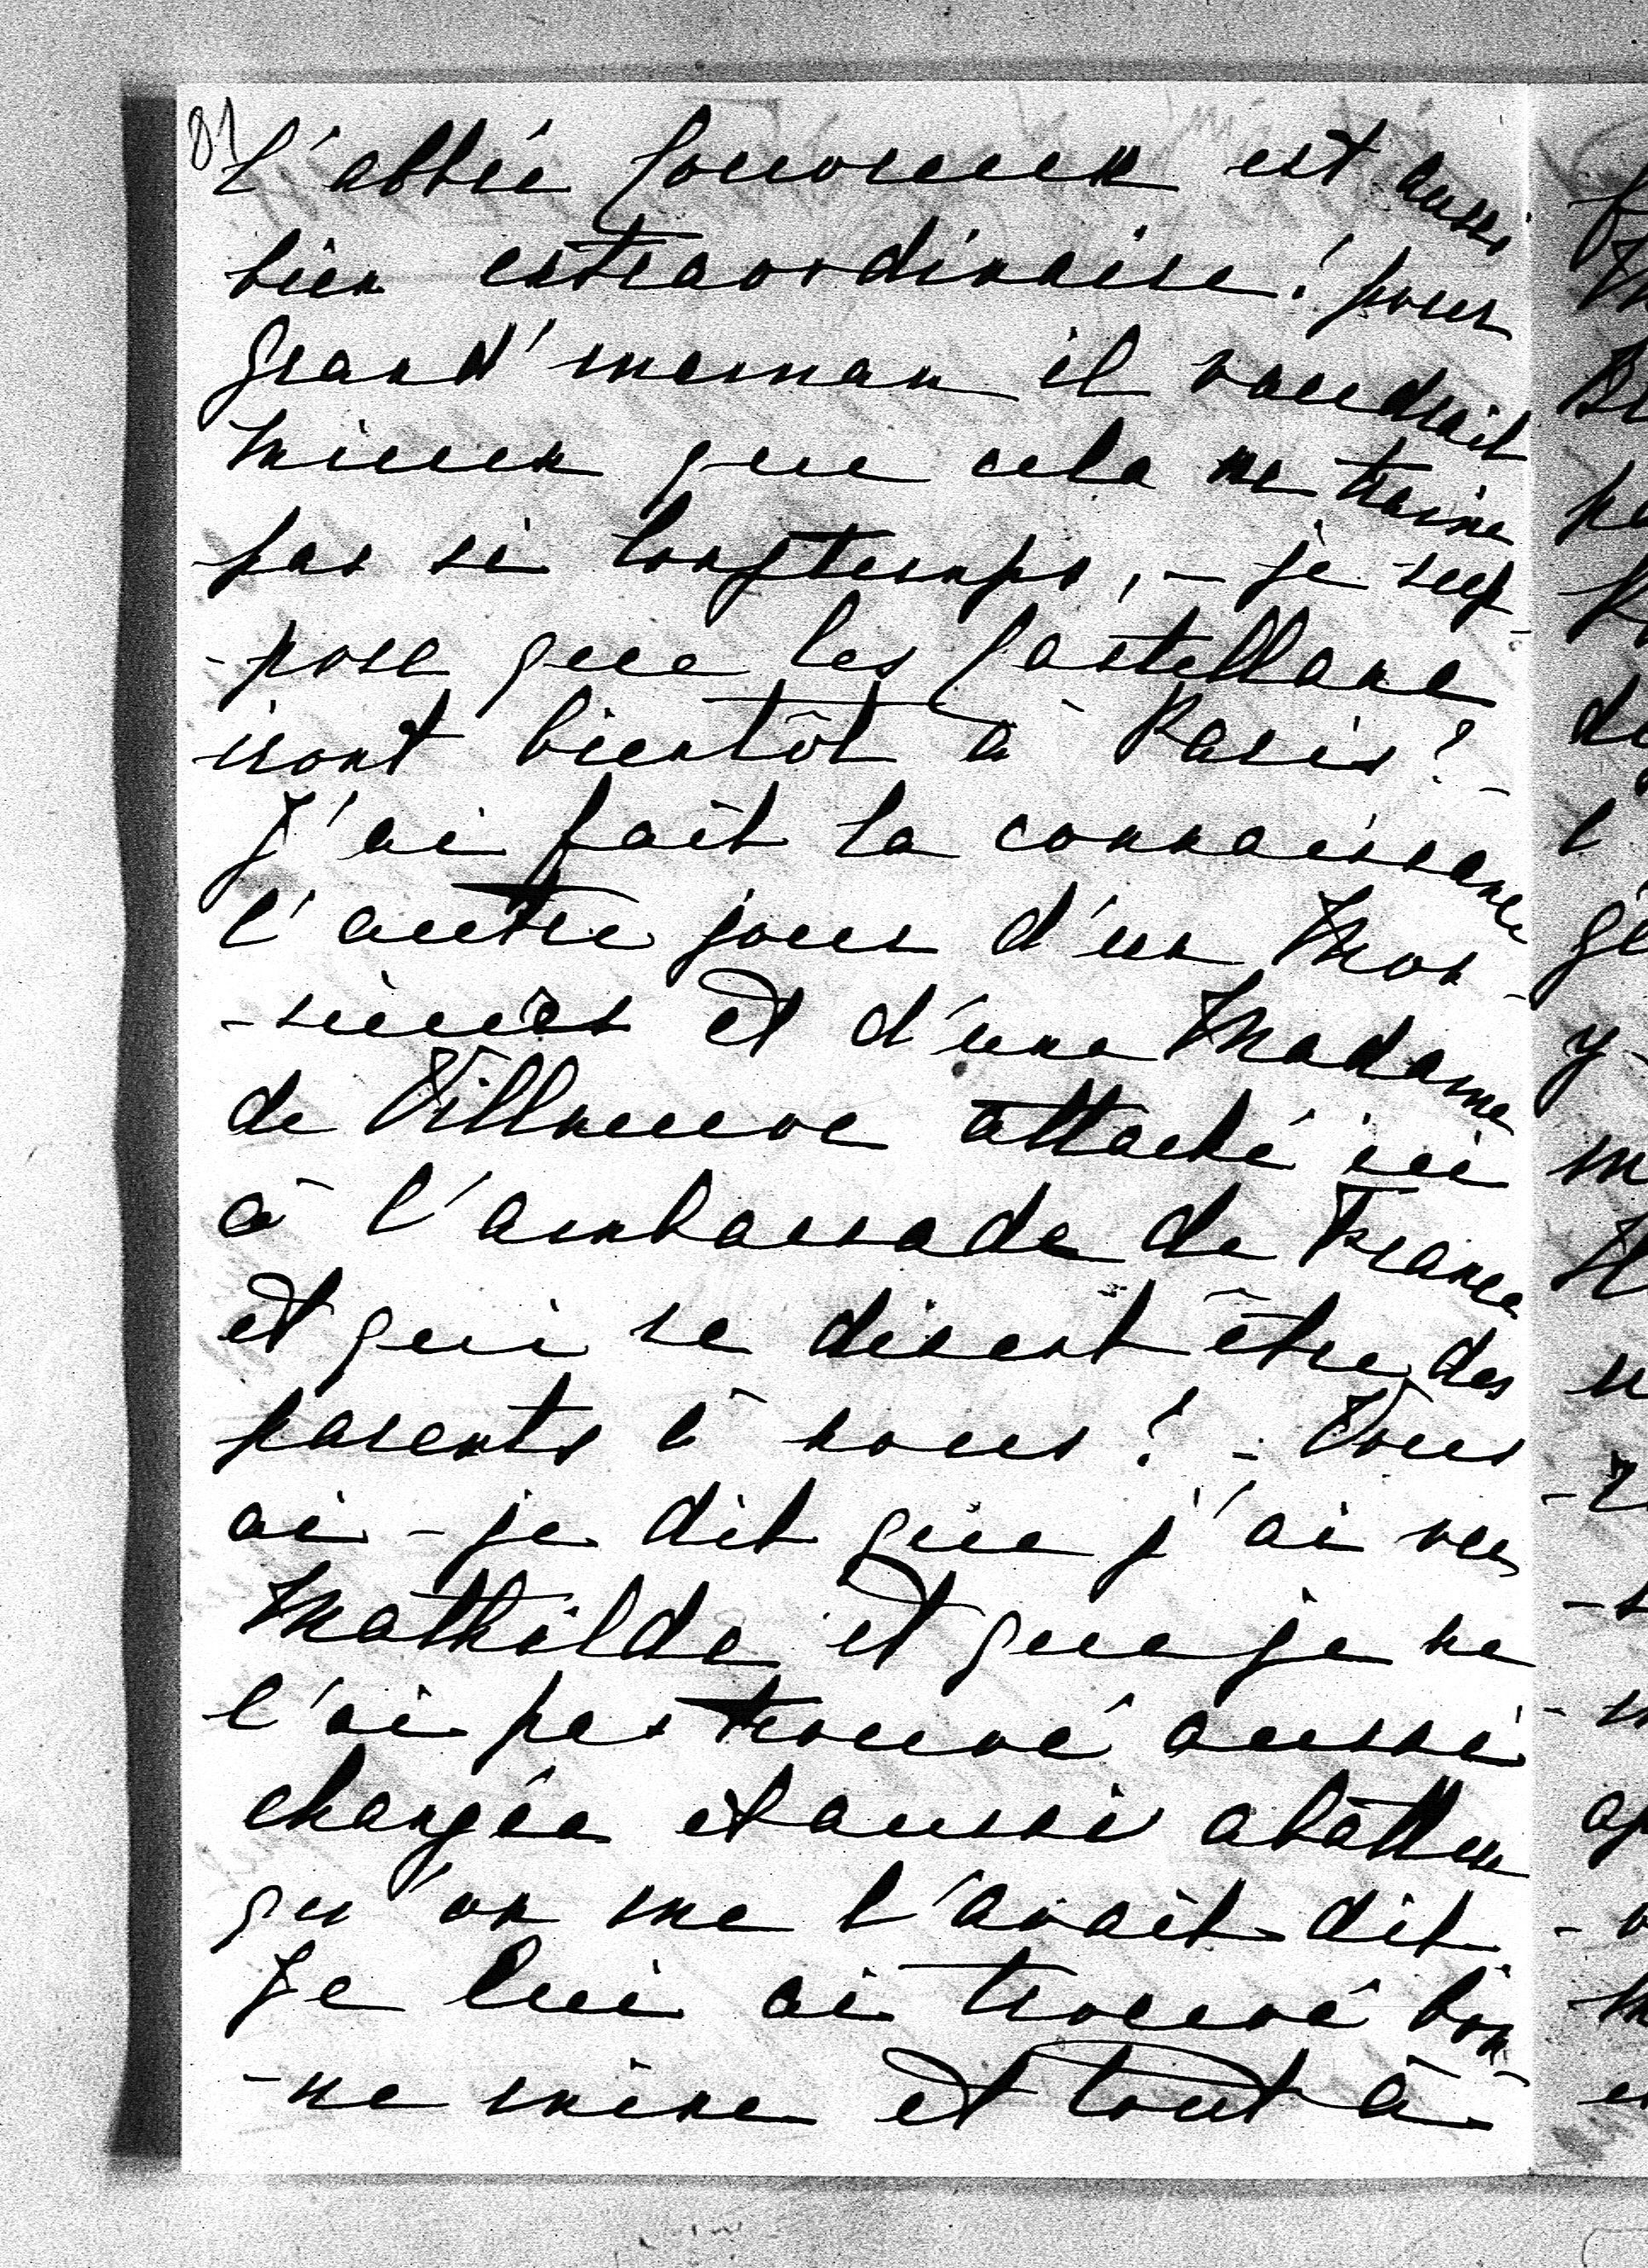 81
L'abbée Couvreux est aussi
bien extraordinaire! pour
grand'maman il vaudrait
mieux que cela ne traine
pas si longtemps, - je sup-
-pose que les Castellane
iront bientôt à Paris? -
J'ai fait la connaissance
l'autre jour d'un Mon-
-sieur et d'une Madame
de Villneuve attaché ici
à l'ambassade de France
et qui se disent être des
parents à nous? - Vous
ai-je dit que j'ai vu
Mathilde et que je ne
l'ai pas trouvé aussi
changée et aussi abattue
qu'on me l'avait dit.
Je lui ai trouvé bon-
-ne mine et tout à